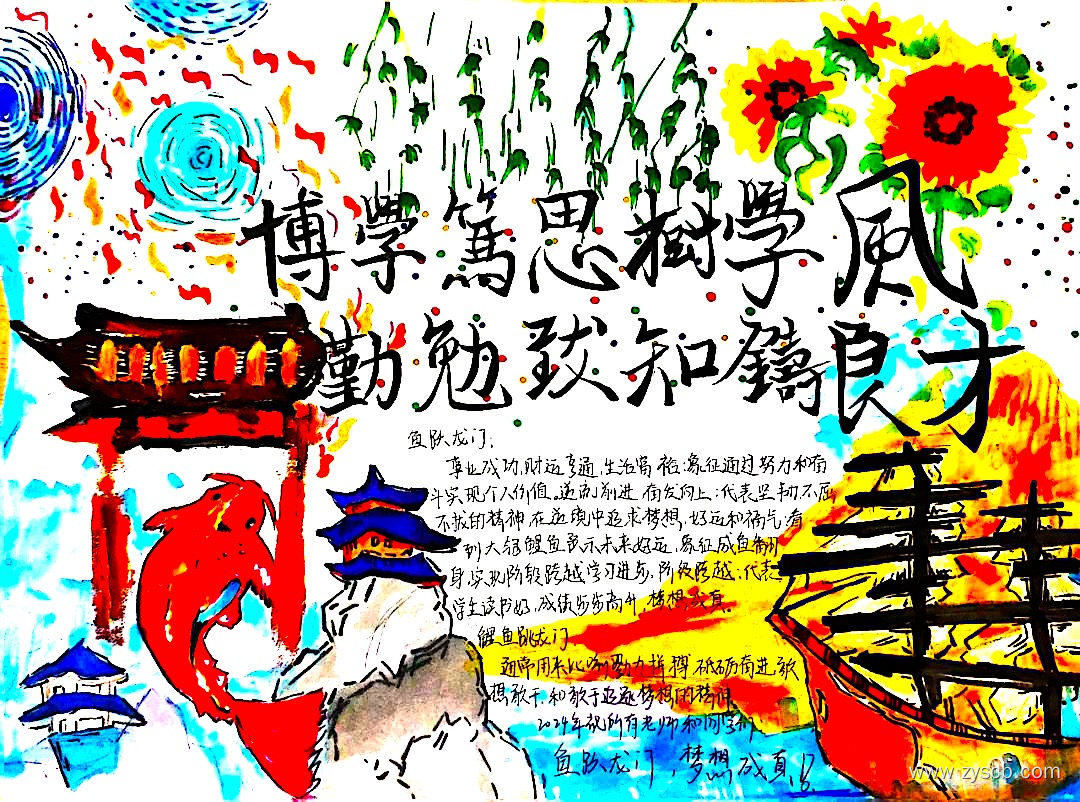 博學篤思樹學風
勤勉致知鑄良才
鱼跃龙门:
事业成功,财运亨通,生活富裕:象征通过努力和奋
斗实现个人价值。逆流前进,奋发向上:代表坚韧不屈
不拔的精神,在逆境中追求梦想,好运和福气:看
到大锦鲤鱼预示未来好运,象征成鱼
身,实现阶段跨越学习进步,阶级跨越:代表
学生读书好,成绩步步高升,梦想成真。
鲤鱼跳龙门
通常用来比喻努力拼搏,砥砺奋进,敢
想敢干,和敢于追逐梦想的精神
2024年祝所有老师和同学们:
鱼跃龙门,梦想成真!
www.zyscb.com